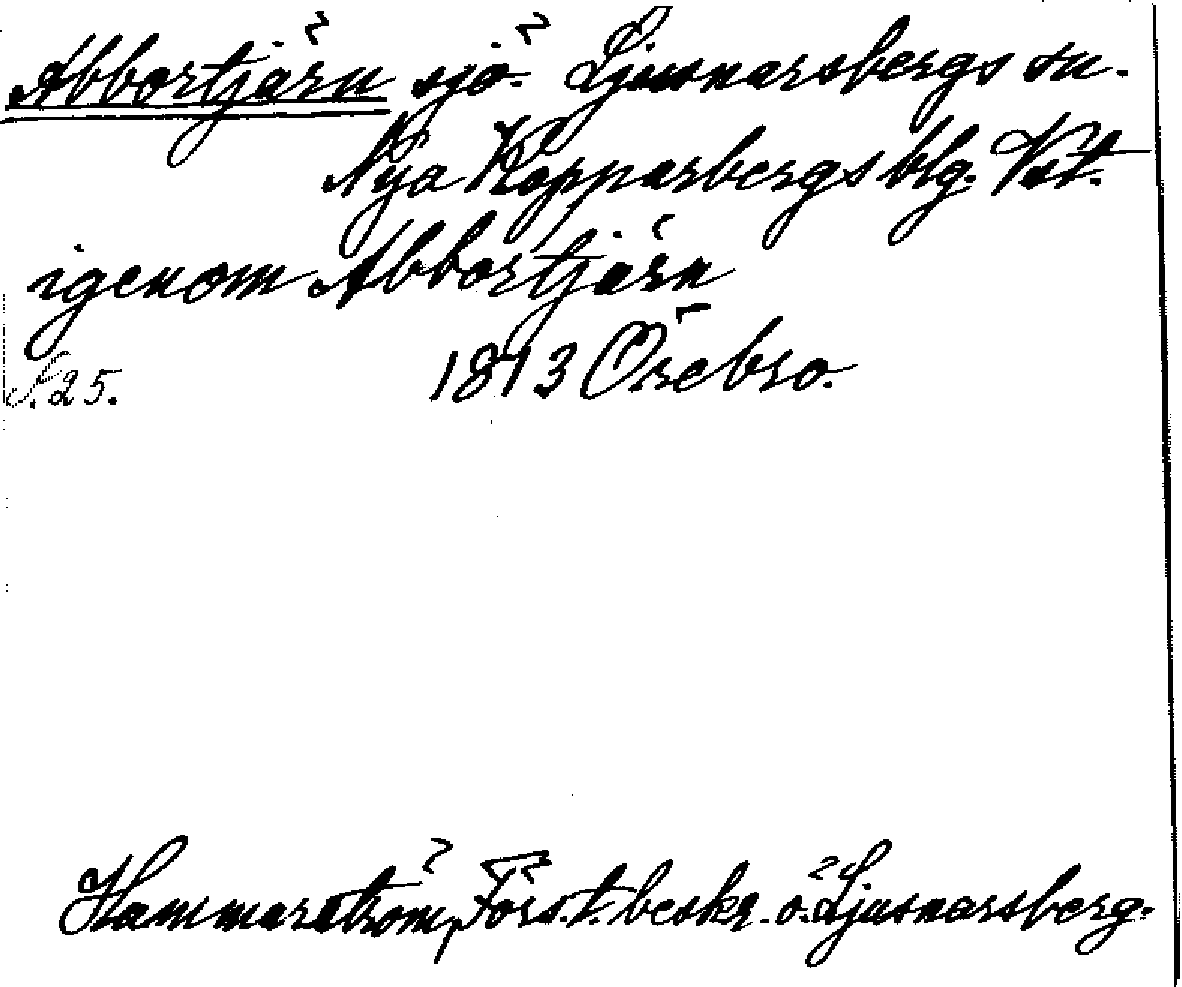 Abbortjärn sjö. Ljusnarsbergs sn.
Nya Kopparbergs blg. Vst.
igenom Abbortjärn
S. 25. 1813 Örebro.
Hammarström, Förs. t. beskr. ö. Ljusnarsberg.